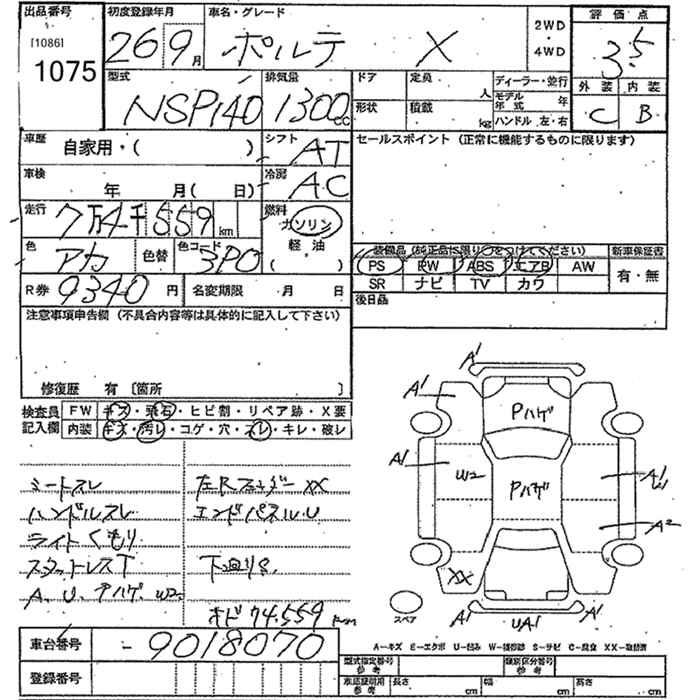 出品番号 初度登録年月 車名・グレード 2WD ・ 4WD 評価点
[1086] 1075 26 9月 ポルテ X 3.5
外装 内装
C B
型式 排気量 ドア 定員 人 ディーラー・並行
NSP140 1300cc 形状 積載 kg モデル年式 年
ハンドル 左・右
車歴 自家用・( ) シフト AT セールスポイント (正常に機能するものに限ります)
車検 年 月(日) 冷房 AC
走行 7万4千559km 燃料 ガソリン
軽油
( )
色 アカ 色替 色コード 3P0
装備品(純正品に限り○をつけてください) 新車保証書
PS PW ABS エアB AW 有・無
SR ナビ TV カワ
R券 9340円 名変期限 月 日 後日品
注意事項申告欄(不具合内容等は具体的に記入して下さい)
修復歴 有 [箇所 ]
検査員 FW キズ・飛石・ヒビ割・リペア跡・X要
記入欄 内装 キズ・汚レ・コゲ・穴・スレ・キレ・破レ
シートスレ 左Rフェンダー XX
ハンドルスレ エンドパネル.U
ライトくもり
スタットレスT 下廻りS.
A、U、Pハゲ、W2
オド 74.559km
A1
A1 Pハゲ A1
A1 W2 Pハゲ A1
A2
XX
スペア A1 UA1 A1
A—キズ E—エクボ U—凹み W—補修跡 S—サビ C—腐食 XX—取替済
車台番号 -9018070
登録番号
型式指定番号 参考 類別区分番号 参考
車庫証明用 参考 長さ cm 幅 cm 高さ cm